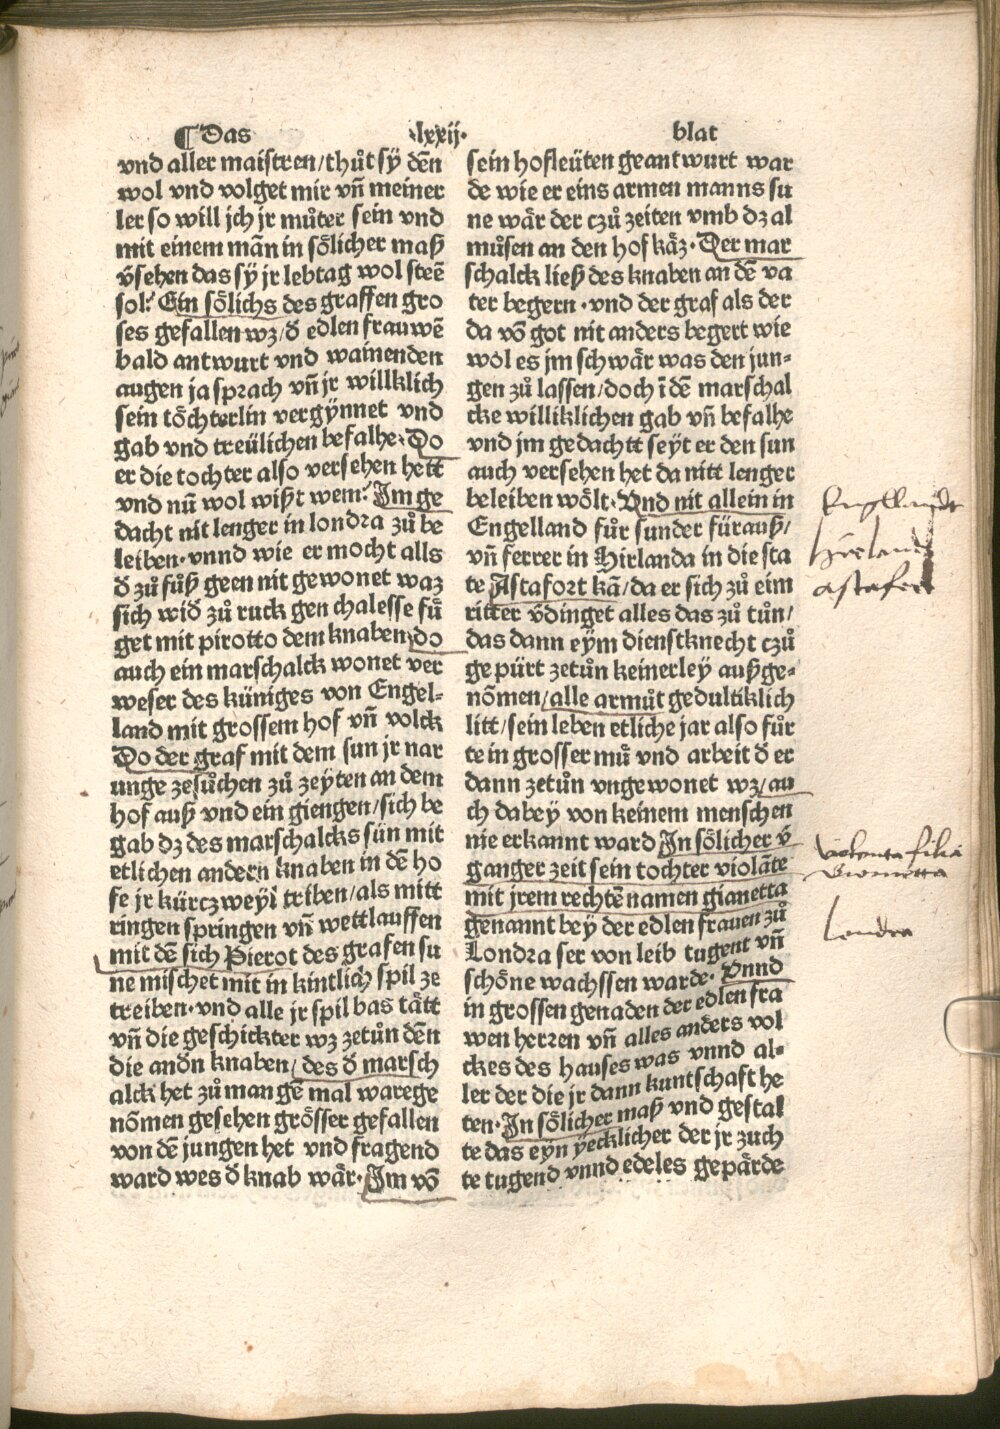 ¶Das ·lxxij· blat
vnd aller maistren/thůt sÿ dẽn
wol vnd volget mir vñ meiner
ler so will jch jr můter sein vnd
mit einem mãn in sőlicher maß
ṽsehen das sÿ jr lebtag wol steẽ
sol? Ein sőlichs des graffen gro
ses gefallen wz/ď edlen frauwẽ
bald antwurt vnd wainenden
augen ja sprach vñ jr willklich
sein tőchterlin vergÿnnet vnd
gab vnd treülichen befalhe·Do
er die tochter also versehen hett
vnd nũ wol wißt wem? Im ge
dacht nit lenger in londra zů be
leiben·vnnd wie er mocht alls
ď zů fůß geen nit gewonet waz
sich wiď zů ruck gen chalesse fů
get mit pirotto dem knaben·do
auch ein marschalck wonet ver
weser des küniges von Engel-
land mit grossem hof vñ volck
Do der graf mit dem sun jr nar
unge zesůchen zů zeÿten an dem
hof auß vnd ein giengen/sich be
gab dz des marschalcks sün mit
etlichen andern knaben in dẽ ho
fe jr kürczweÿl triben/als mitt
ringen springen vñ wettlauffen
mit dẽ sich Pierot des grafen su
ne mischet mit in kintlich spil ze
treiben·vnd alle jr spil bas tått
vñ die geschickter wz zetůn dẽn
die anďn knaben/des ď marsch
alck het zů mangẽ mal warege
nőmen gesehen grősser gefallen
von dẽ jungen het vnd fragend
ward wes ď knab wår·Im võ
sein hofleüten geantwurt war
de wie er eins armen manns su
ne wår der czů zeiten vmb dz al
můsen an den hof kåz·Der mar
schalck ließ des knaben an dẽ va
ter begern·vnd der graf als der
da võ got nit anders begert wie
wol es jm schwår was den jun-
gen zů lassen/doch ĩ dẽ marschal
cke williklichen gab vñ befalhe
vnd jm gedachtt seÿt er den sun
auch versehen het da nitt lenger
beleiben wőlt·Vnd nit allein in
Engelland fůr sunder fürauß/
vñ ferrer in Hirlanda in die sta
te Astafort kã/da er sich zů eim
ritter v̈dinget alles das zů tůn/
das dann eÿm dienstknecht czů
gepürt zetůn keinerleÿ außge-
nőmen/alle armůt gedultiklich
litt/sein leben etliche jar also fůr
te in grosser mů vnd arbeit ď er
dann zetůn vngewonet wz/au
ch dabeÿ von keinem menschen
nie erkannt ward In sőlicher v̈
ganger zeit sein tochter violãte
mit jrem rechtẽ namen gianetta
genannt beÿ der edlen frauen zů
Londra ser von leib tugent vñ
schőne wachssen warde·Vnnd
in grossen genaden der edlen fra
wen herzen vñ alles anders vol
ckes des hauses was vnnd al-
ler der die jr dann kuntschaft he
ten·In sőlicher maß vnd gestal
te das eÿn ÿecklicher der jr zuch
te tugend vnnd edeles gepårde
Engellandt
Hirland
astafort
Violenta filia
Gianetta
Londra